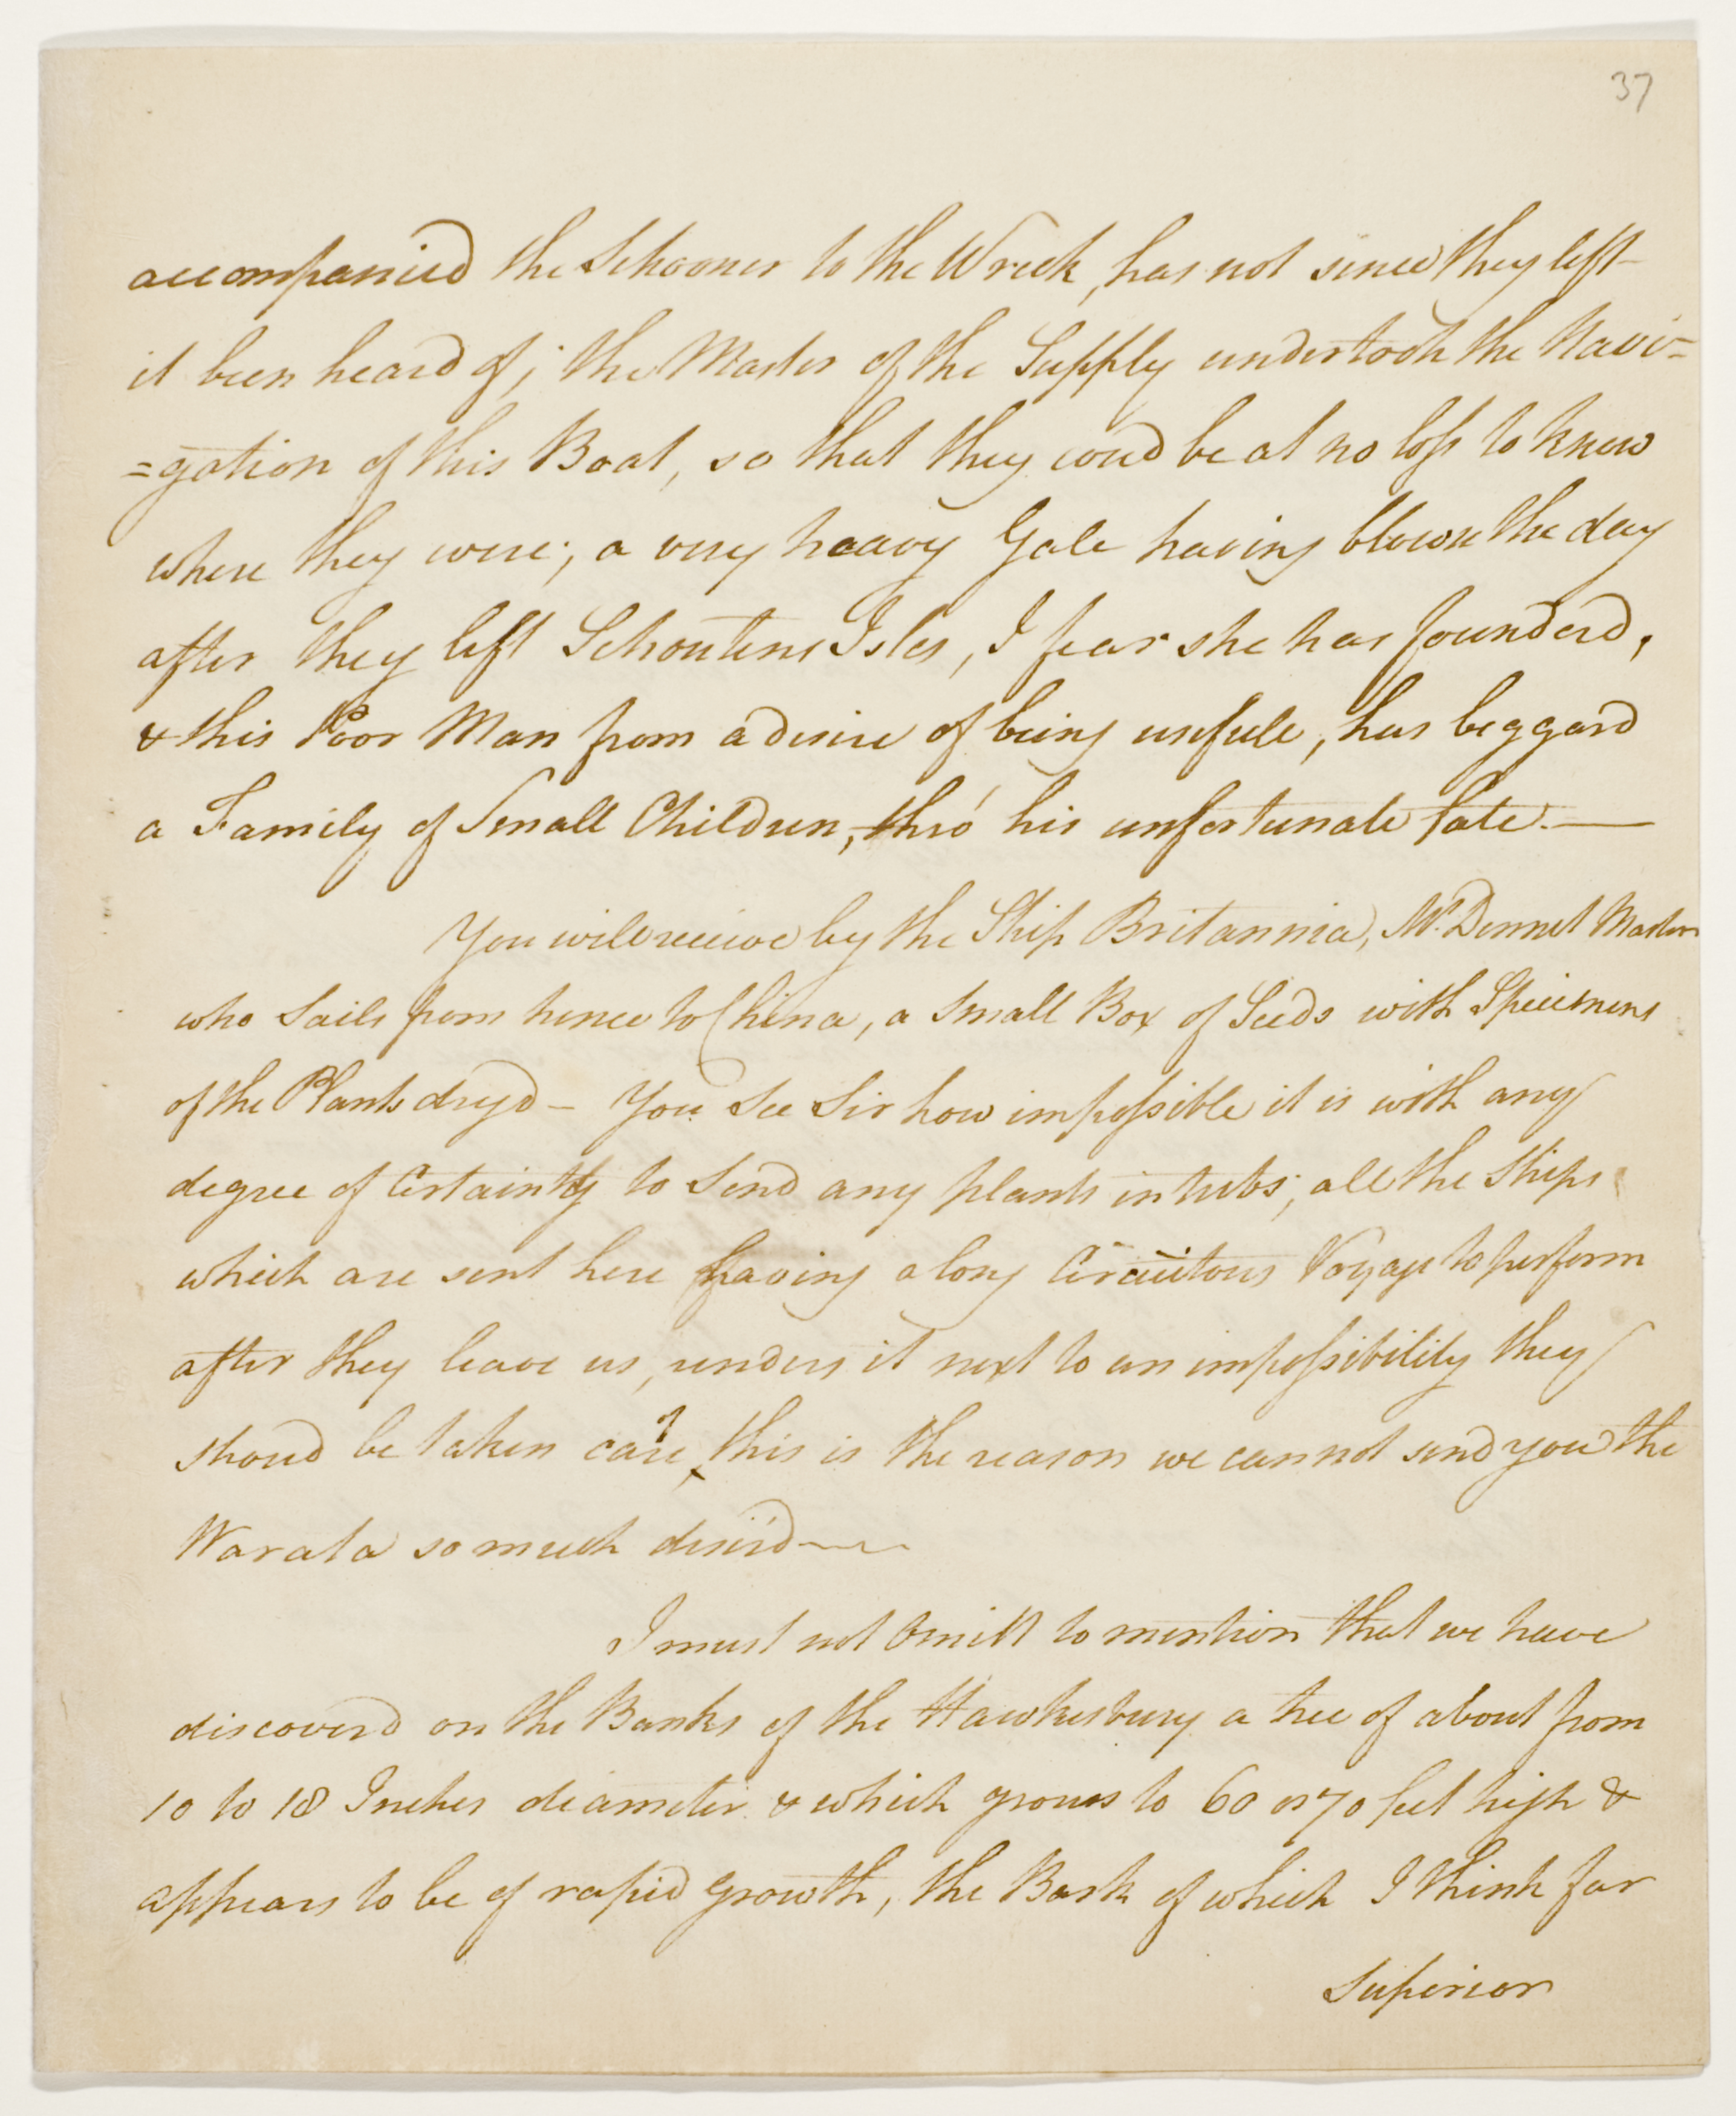 37
accompanied the Schooner to the Wreck, has not since they left
it been heard of; the Master of the Supply undertook the Navi=
=gation of this Boat, so that they cou'd be at no loss to know
where they were; a very heavy Gale having blown the day
after they left Schoutens Isles, I fear she has founderd,
& this Poor Man from a desire of being usefule, has beggard
a Family of Small Children, thro' his unfortunate fate. —
You will receive by the Ship Britannia, Mr. Dennet Master
who Sails from hence to China, a Small Box of Seeds with Specimens
of the Plants dryd — You See Sir how impossible it is with any
degree of Certainty to Send any plants in tubs; all the Ships
which are sent here having a long Circuitous Voyage to perform
after they leave us, renders it next to an impossibility they
shoud be taken care of, this is the reason we cannot send you the
Warata so much desir'd —
I must not Omitt to mention that we have
discoverd on the Banks of the Hawkesbury a tree of about from
10 to 18 Inches diameter & which grows to 60 or 70 feet high &
appears to be of rapid growth, the Bark of which I think far
Superior